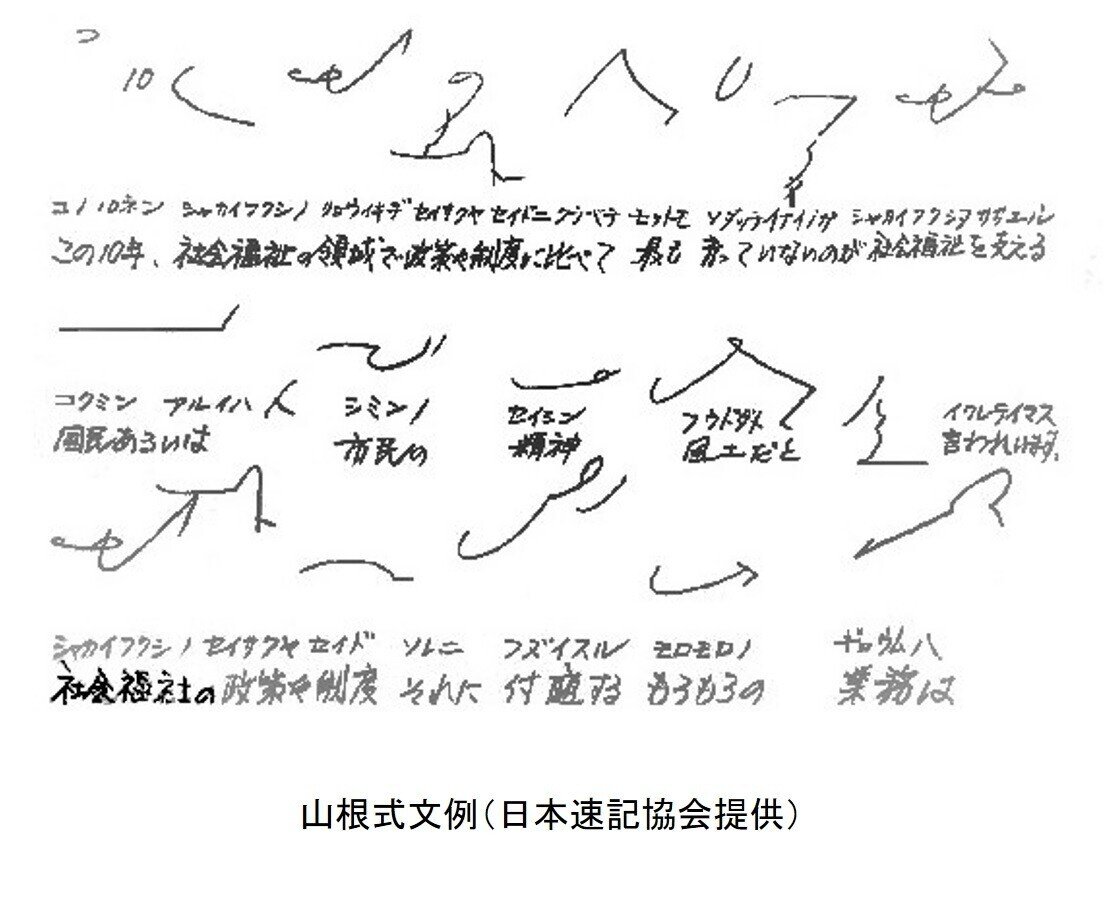 10
コノ10ネン シャカイフクシノ リョウイキデ セイサクヤ セイドニクラベテ モットモ ソダッテイナイノガ シャカイフクシヲ ササエル
この10年、社会福祉の領域で政策や制度に比べて 最も 育っていないのが 社会福祉を支える
コクミン アルイハ シミンノ セイシン フウドダト イワレテイマス
国民あるいは 市民の 精神 風土だと 言われています。
シャカイフクシノ セイサクヤ セイド ソレニ フズイスル モロモロノ ギョウムハ
社会福祉の 政策や制度 それに 付随する もろもろの 業務は
山根式文例(日本速記協会提供)